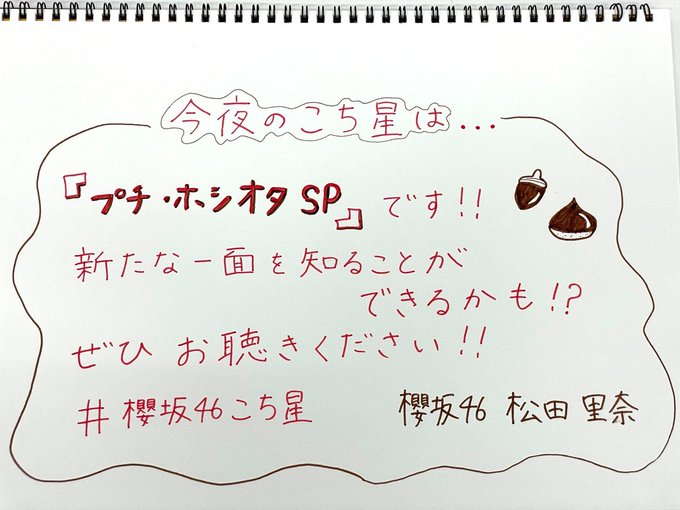 今夜のこち星は...
『プチ・ホシオタSP』です!!
新たな一面を知ることが
できるかも!?
ぜひ お聴きください!!
#櫻坂46こち星
櫻坂46 松田里奈